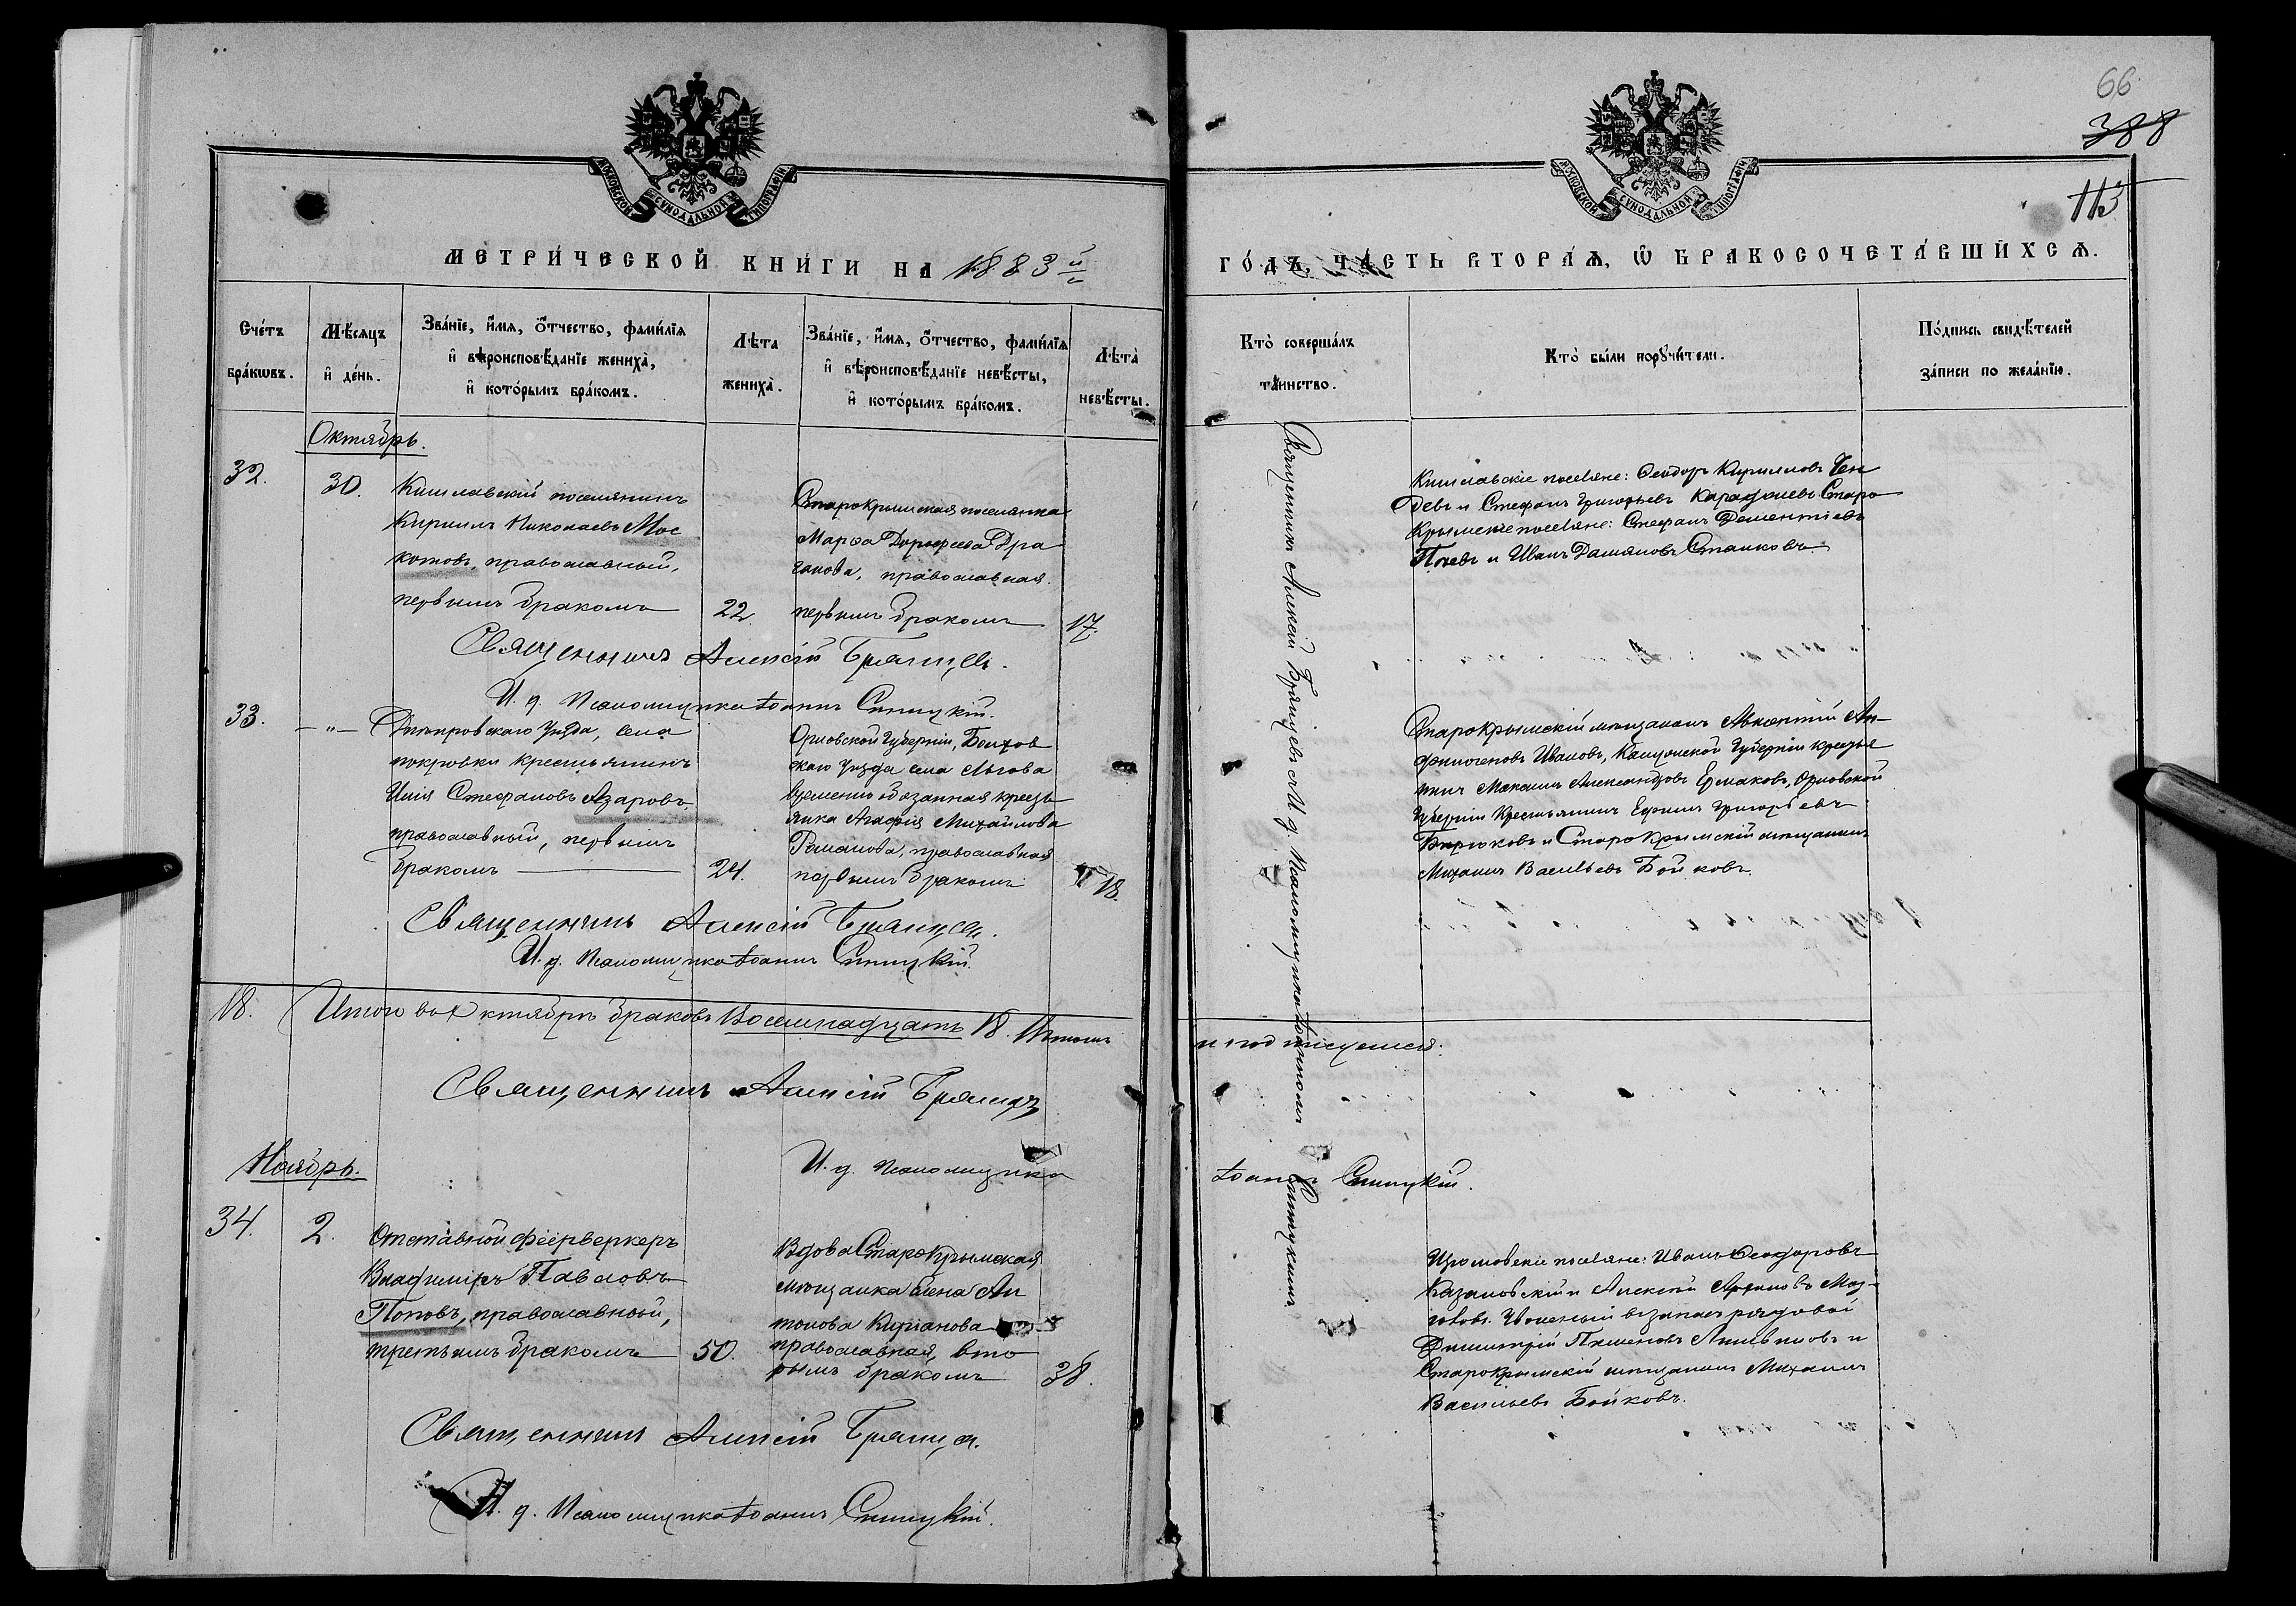 66
388
113
МОСКОВСКОЙ СУНОДАЛЬНОЙ ТИПОГРАФІИ
МОСКОВСКОЙ СУНОДАЛЬНОЙ ТИПОГРАФІИ
МЕТРИ́ЧЕСКОЙ КНИ́ГИ НА 1883й
ГО́ДЪ, ЧА́СТЬ ВТОРА́Я, Ѡ БРАКОСОЧЕТА́ВШИХСЯ.
Сче́тъ бра́кѡвъ.
Мѣ́сяцъ и҆ де́нь.
Зва́нїе, и҆́мя, ѻ҆́тчество, фами́лїя
и҆ вѣроисповѣ́данїе жениха̀,
и҆ кото́рымъ бра́комъ.
Лѣ́та жениха̀.
Зва́нїе, и҆́мя, ѻ҆́тчество, фами́лїя
и҆ вѣроисповѣ́данїе невѣ́сты,
и҆ кото́рымъ бра́комъ.
Лѣ́та невѣ́сты.
Кто̀ соверша́лъ та́инство.
Кто̀ бы́ли порꙋчи́тели.
По́дпись свидѣ́телей
за́писи по жела́нїю.
Октябрь.
32.
30.
Кишлавскій поселянинъ
Кирилъ Николаевъ Мос
котовъ, православный,
первымъ бракомъ
22.
Старокрымская поселянка
Марѳа Дорофеева Дра
ганова, православная
первымъ бракомъ
17.
Кишлавскіе поселяне: Ѳеодоръ Кирилловъ Чен
девъ и Стефанъ Григорьевъ Карафаевъ Старо
Крымскіе поселяне: Стефанъ Дементіевъ
и Иванъ Дамяновъ Станковъ.
Священникъ Алексій Брянцевъ.
И. д. Псаломщика Іоаннъ Синицкій.
33.
— „ —
Днѣпровскаго Уѣзда, села
покровки крестьянинъ
Илія Стефановъ Азаровъ,
православный, первымъ
бракомъ
24.
Орловской Губерніи, Болхов
скаго Уѣзда села Льгова
временно обязанная кресть
янка Агафія Михайлова
Романова, православная
первымъ бракомъ
18.
Старокрымскій мѣщанинъ Авксентій Ан-
финогеновъ Ивановъ, Калужской Губерніи кресть
янинъ Максимъ Александровъ Ермаковъ, Орловской
Губерніи Крестьянинъ Ефимъ Григорьевъ
Бирюковъ и Старо Крымскій мѣщанинъ
Михаилъ Васильевъ Бойковъ.
Священникъ Алексій Брянцевъ.
И. д. Псаломщика Іоаннъ Синицкій.
Священникъ Алексій Брянцевъ съ И д. Псаломщика Іоанномъ Синицкимъ.
18.
Итого въ Октябрѣ браковъ Восемнадцать 18.
и подписуемся:
Священникъ Алексій Брянцевъ
И. д. Псаломщика
Іоаннъ Синицкій.
Ноябрь.
34.
2.
Отставной фейрверкеръ
Владиміръ Павловъ
Поповъ, православный,
третьимъ бракомъ
50.
Вдова Старокрымская
мѣщанка Елена Ан
тонова Киріанова
православная, вто
рымъ бракомъ
38.
поселяне: Иванъ Ѳеодоровъ
Казановскій и Алексѣй
въ запасъ рядовой
Димитрій и
Старокрымскій мѣщанинъ Михаилъ
Васильевъ Бойковъ.
Священникъ Алексій Брянцевъ.
И. д. Псаломщика Іоаннъ Синицкій.